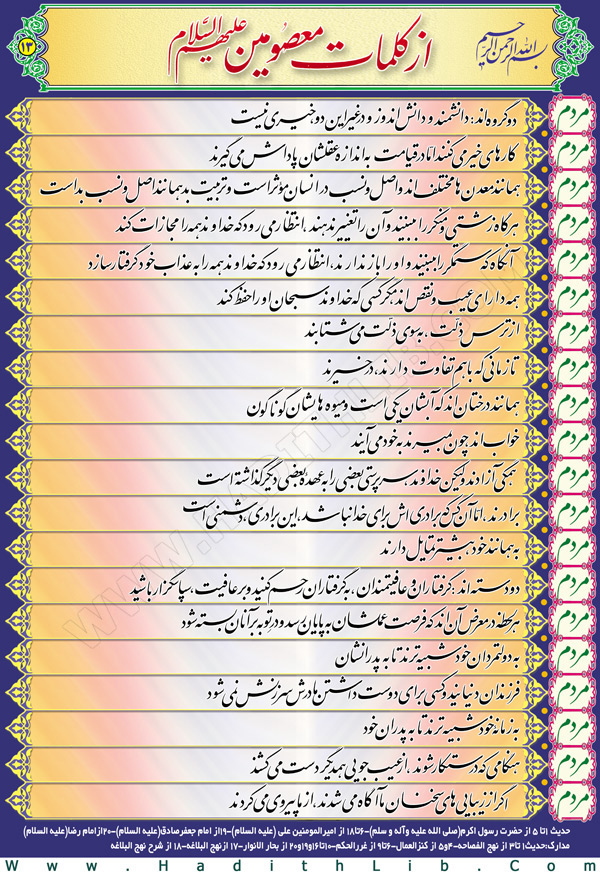 بسم الله الرحمن الرحیم
از کلمات معصومین علیهم السّلام
۱۳
مردم دو گروه‌اند: دانشمند و دانش اندوز و در غیر این دو خیری نیست
مردم کارهای خیر می کنند اما در قیامت به اندازه عقلشان پاداش می گیرند
مردم همانند معدن ها مختلف اند و اصل و نسب در انسان مؤثر است و تربیت بد همانند اصل و نسب بد است
مردم هرگاه زشتی و منکر را ببینند و آن را تغییر ندهند، انتظار می رود که خداوند همه را مجازات کند
مردم آنگاه که ستمگر را ببینند و او را باز ندارند، انتظار می رود که خداوند همه را به عذاب خود گرفتار سازد
مردم همه دارای عیب و نقص اند مگر کسی که خداوند سبحان او را حفظ کند
مردم از ترس ذلّت، به سوی ذلّت می شتابند
مردم تا زمانی که با هم تفاوت دارند، در خیرند
مردم همانند درختان اند که آبشان یکی است و میوه هایشان گوناگون
مردم خواب اند چون میرند به خود می آیند
مردم همگی آزادند ولیکن خداوند سرپرستی بعضی را به عهده بعضی دیگر گذاشته است
مردم برادرند، امّا آن کس که برادری اش برای خدا نباشد، این برادری، دشمنی است
مردم به همانند خود بیشتر تمایل دارند
مردم دو دسته اند: گرفتاران و عافیتمندان، به گرفتاران رحم کنید و بر عافیت، سپاسگزار باشید
مردم هر لحظه در معرض آن اند که فرصت عملشان به پایان رسد و در توبه بر آنان بسته شود
مردم به دولتمردان خود شبیه ترند تا به پدرانشان
مردم فرزندان دنیایند و کسی برای دوست داشتن مادرش سرزنش نمی شود
مردم به زمانه خود شبیه ترند تا به پدران خود
مردم هنگامی که درستکار شوند، از عیب جویی همدیگر دست می کشند
مردم اگر از زیبایی های سخنان ما آگاه می شدند، از ما پیروی می کردند
حدیث ۱تا ۵ از حضرت رسول اکرم(صلی الله علیه وآله و سلم)-۶تا۱۸ از امیرالمومنین علی (علیه السلام)-۱۹از امام جعفرصادق(علیه السلام)-۲۰ازامام رضا(علیه السلام)
مدارک:حدیث۱ تا۳ از نهج الفصاحه-۴و۵ از کنزالعمال-۶تا۹ از غررالحکم-۱۰تا۱۶و۱۹و۲۰ از بحار الانوار-۱۷ ازنهج البلاغه-۱۸ از شرح نهج البلاغه
www.HadithLib.Com